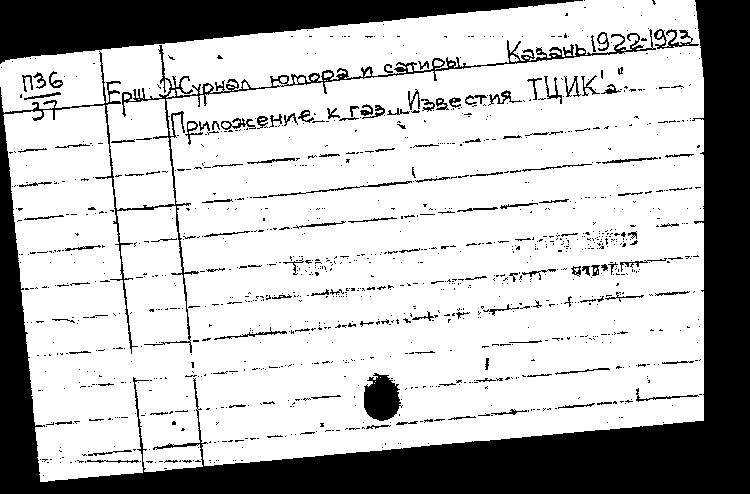 П36
37
Ерш. Журнал юмора и сатиры. Казань, 1922-1923
Приложение к газ. „Известия ТЦИК'а"